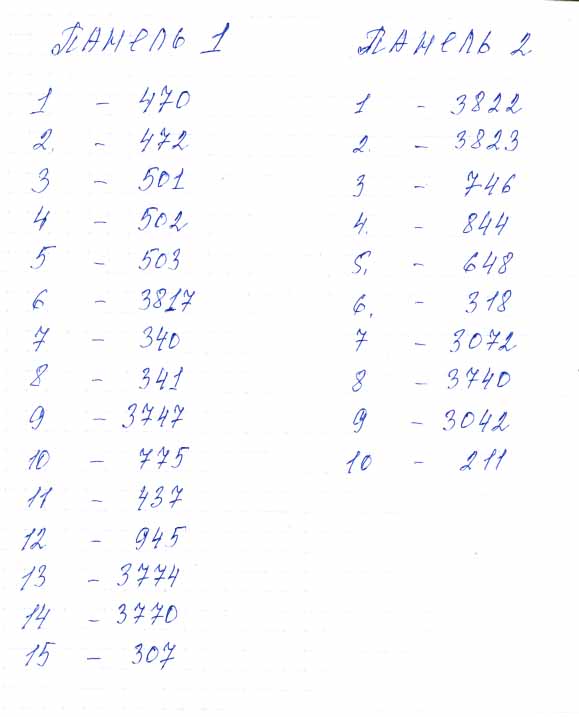 ПАНЕЛЬ 1
1 - 470
2. - 472
3 - 501
4 - 502
5 - 503
6 - 3817
7 - 340
8 - 341
9 - 3747
10 - 775
11 - 437
12 - 945
13 - 3774
14 - 3770
15 - 307
ПАНЕЛЬ 2
1 - 3822
2. - 3823
3 - 746
4. - 844
5. - 648
6. - 318
7 - 3072
8 - 3740
9 - 3042
10 - 211